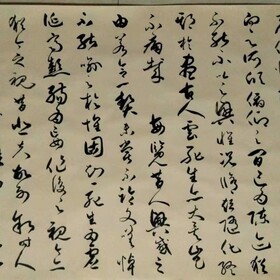 向之所欣俛仰之間已為陳迹猶
不能不以之興懷況脩短隨化終
期於盡古人云死生亦大矣豈
不痛哉 每覽昔人興感之
由若合一契未嘗不臨文嗟悼
不能喻之於懷固知一死生為虛
誕齊彭殤為妄作後之視今亦
猶今之視昔悲夫故列叙時人